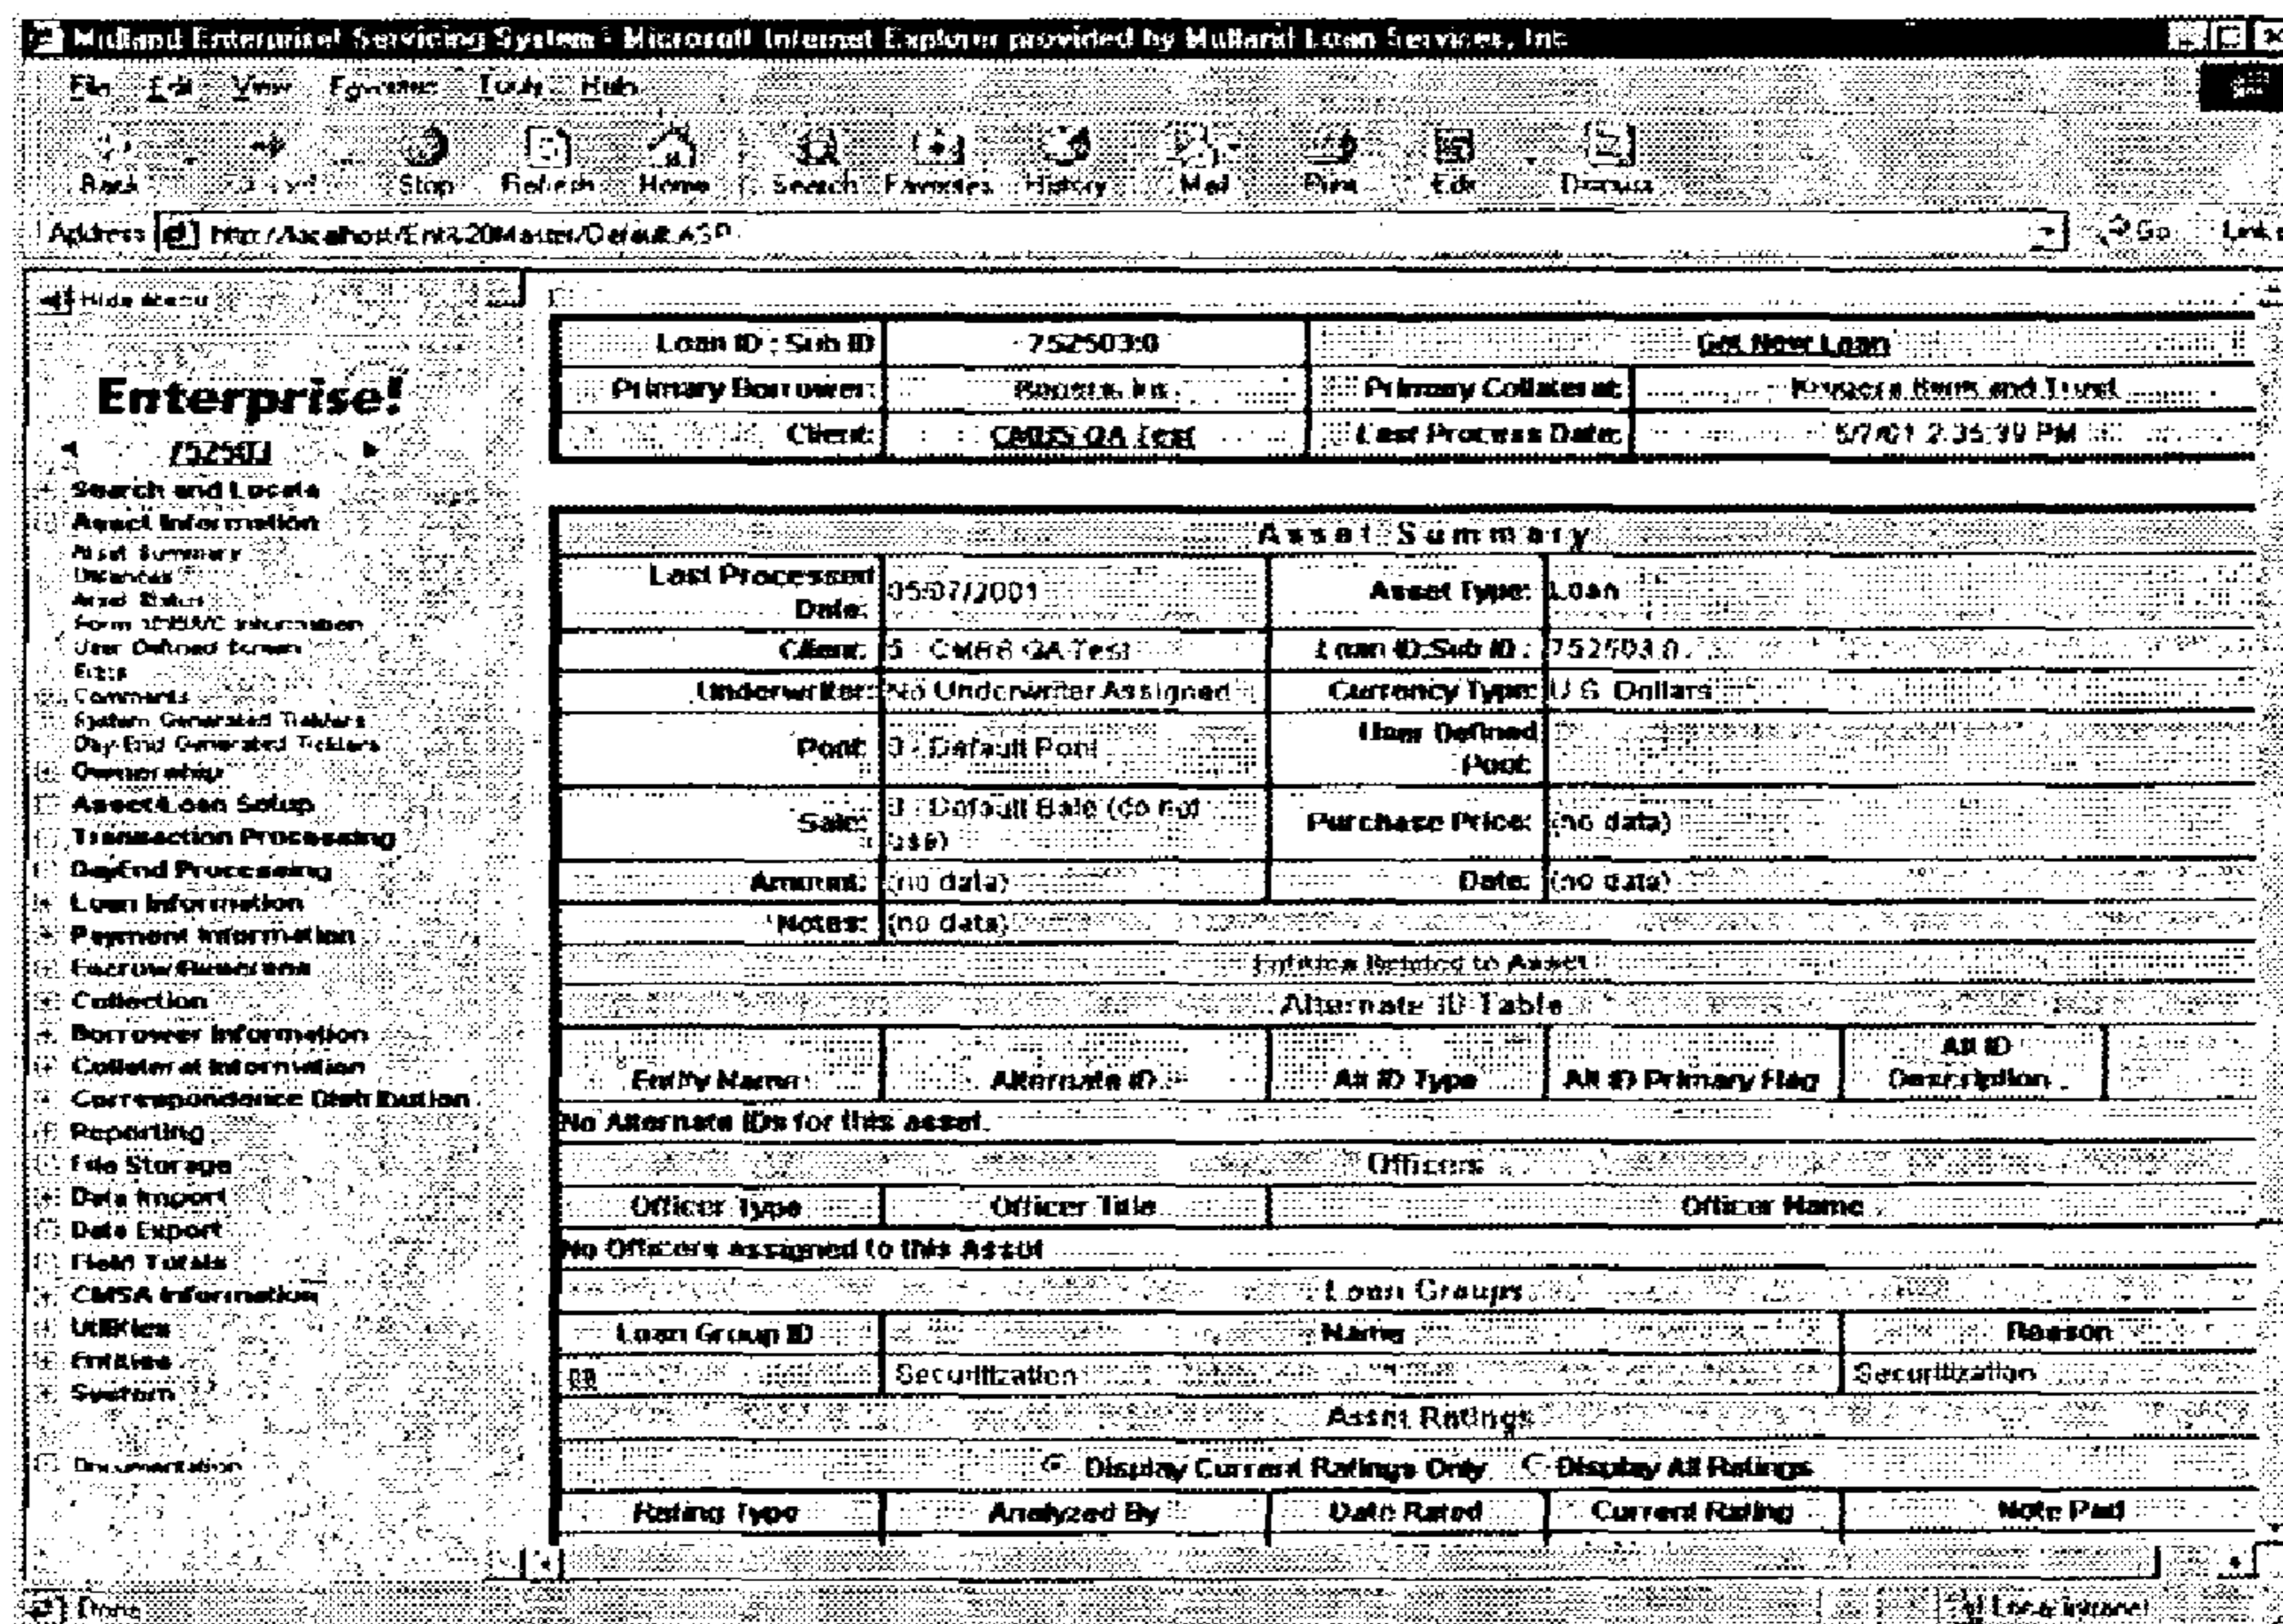 Midland Enterprise! Servicing System - Microsoft Internet Explorer provided by Midland Loan Services, Inc
File Edit View Favorites Tools Help
Back Stop Refresh Home Search Favorites History Mail Print Edit Discuss
Address http://localhost/Ent%20Master/Default.ASP Go Links
Hide Menu
Enterprise!
752503
Search and Locate
Asset Information
Asset Summary
Balances
Asset Status
Form 1098A/C Information
User Defined Screen
Comments
System Generated Ticklers
Day-End Generated Ticklers
Ownership
Asset/Loan Setup
Transaction Processing
DayEnd Processing
Loan Information
Payment Information
Escrow/Reserves
Collection
Borrower Information
Collateral Information
Correspondence Distribution
Reporting
File Storage
Data Import
Data Export
Field Totals
CMSA Information
Utilities
Entities
System
Documentation
Loan ID : Sub ID 752503:0 Get New Loan
Primary Borrower: Primary Collateral: Bank and Trust
Client: CMBS QA Test Last Process Date: 5/7/01 2:35:39 PM
Asset Summary
Last Processed Date: 05/07/2001 Asset Type: Loan
Client: 5 - CMBS QA Test Loan ID:Sub ID : 752503:0
Underwriter: No Underwriter Assigned Currency Type: U.S. Dollars
Pool: 0 - Default Pool User Defined Pool:
Sale: 0 - Default Sale (do not use) Purchase Price: (no data)
Amount: (no data) Date: (no data)
Notes: (no data)
Entities Related to Asset
Alternate ID Table
Entity Name Alternate ID Alt ID Type Alt ID Primary Flag Alt ID Description
No Alternate IDs for this asset.
Officers
Officer Type Officer Title Officer Name
No Officers assigned to this Asset
Loan Groups
Loan Group ID Name Reason
Securitization Securitization
Asset Ratings
Display Current Ratings Only Display All Ratings
Rating Type Analyzed By Date Rated Current Rating Note Pad
Done Local intranet